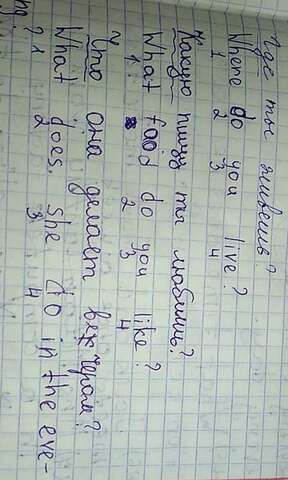 Где ты живешь?
Where do you live?
1 2 3 4
Какую пищу ты любишь?
What food do you like?
1 2 3 4
Что она делает вечером?
What does she do in the eve-
1 2 3 4
ng?